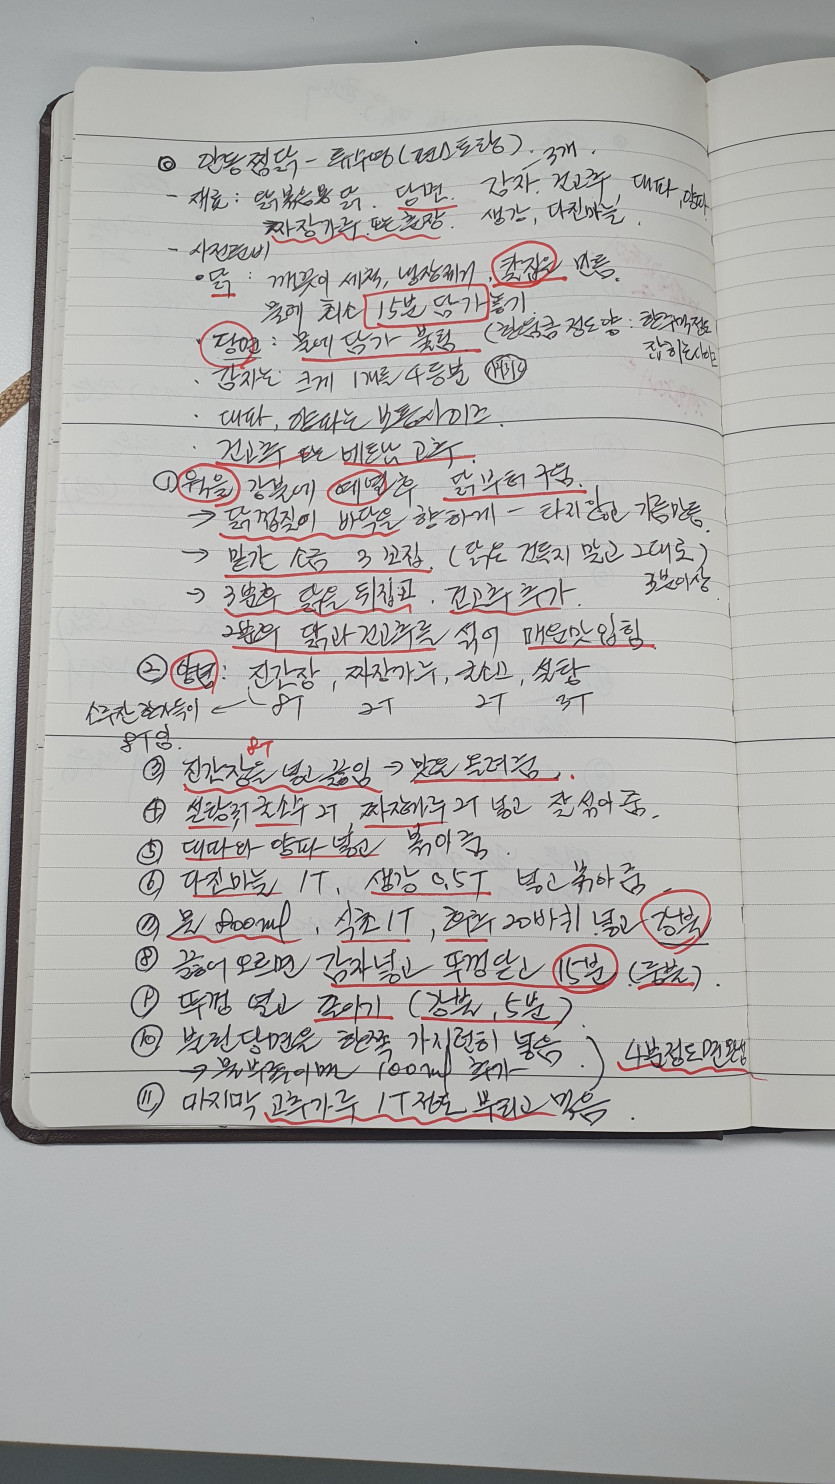 ◎ 안동찜닭 - 류수영(편스토랑). 3개.
- 재료: 닭볶음용 닭. 당면. 감자. 건고추, 대파, 양파
짜장가루 또는 춘장. 생강, 다진마늘.
- 사전준비
· 닭 : 깨끗이 세척, 내장제거, 칼집을 만듬.
물에 최소 15분 담가놓기
· 당면 : 물에 담가 불림 (한웅큼 정도 양 : 한주먹정도
잡히는사이즈
· 감자는 크게 1개를 4등분
· 대파, 양파는 보통사이즈.
· 건고추 또는 베트남 고추.
① 웍을 강불에 예열 후 닭부터 구움.
→ 닭껍질이 바닥을 향하게 - 타지않고 기름만듬.
→ 밑간 소금 3꼬집. (닭은 건들지 말고 그대로)
3분이상.
→ 3분후 닭을 뒤집고. 건고추 추가.
2분후 닭과 건고추를 섞어 매운맛 입힘
② 양념 : 진간장, 짜장가루, 굴소스, 설탕
8T 2T 2T 3T
소주잔 한가득이
8T임.
8T
③ 진간장을 넣고 끓임 → 맛을 올려줌.
④ 설탕 굴소스 2T, 짜장가루 2T 넣고 잘 섞어줌.
⑤ 대파와 양파 넣고 볶아줌.
⑥ 다진마늘 1T, 생강 0.5T 넣고 볶아줌.
⑦ 물 800ml, 식초 1T, 후추 20바퀴 넣고 강불
⑧ 끓어오르면 감자넣고 뚜껑닫고 15분 (중불).
⑨ 뚜껑 열고 졸이기 (강불, 5분)
⑩ 불린당면은 한쪽 가지런히 넣음.
→ 물부족이면 100ml 추가 4분정도면 완성
⑪ 마지막 고추가루 1T정도 뿌리고 먹음.